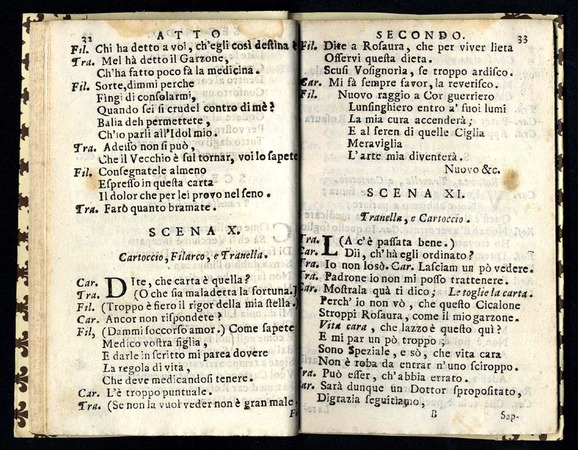 32 ATTO
Fil. Chi ha detto a voi, ch'egli così destina?
Tra. Mel hà detto il Garzone,
Ch'ha fatto poco fà la medicina.
Fil. Sorte, dimmi perche
Fingi di consolarmi,
Quando sei sì crudel contro di mè?
Balia deh permettete,
Ch'io parli all'Idol mio.
Tra. Adesso non si può,
Che il Vecchio è sul tornar, voi lo sapete
Fil. Consegnatele almeno
Espresso in questa carta
Il dolor che per lei provo nel seno.
Tra. Farò quanto bramate.
SCENA X.
Cartoccio, Filarco, e Tranella.
Car. Dite, che carta è quella?
Tra. (O che sia maladetta la fortuna.)
Fil. (Troppo è fiero il rigor della mia stella.)
Car. Ancor non rispondete?
Fil, (Dammi soccorso amor.) Come sapete
Medico vostra figlia,
E darle in scritto mi parea dovere
La regola di vita,
Che deve medicandosi tenere.
Car. L'è troppo puntuale.
Tra. (Se non la vuol veder non è gran male.
SECONDO. 33
Fil. Dite a Rosaura, che per viver lieta
Osservi questa dieta.
Scusi Vosignoria, se troppo ardisco.
Car. Mi fà sempre favor, la reverisco.
Fil. Nuovo raggio a Cor guerriero
Lunsinghiero entro a' suoi lumi
La mia cura accenderà;
E al seren di quelle Ciglia
Meraviglia
L'arte mia diventerà.
Nuovo &c.
SCENA XI.
Tranella, e Cartoccio.
Tra. (A c'è passata bene.)
Car. LDii, ch'hà egli ordinato?
Tra. Io non losò. Car. Lasciam un pò vedere.
Tra. Padrone io non mi posso trattenere.
Car. Mostrala quà ti dico; Le toglie la carta.
Perch' io non vò, che questo Cicalone
Stroppi Rosaura, come il mio garzone.
Vita cara, che lazzo è questo quì?
E mi par un pò troppo;
Sono Speziale, e sò, che vita cara
Non è roba da entrar n'uno sciroppo.
Tra. Può esser, ch'abbia errato.
Car. Sarà dunque un Dottor spropositato,
Digrazia seguitiamo,
B Sap-